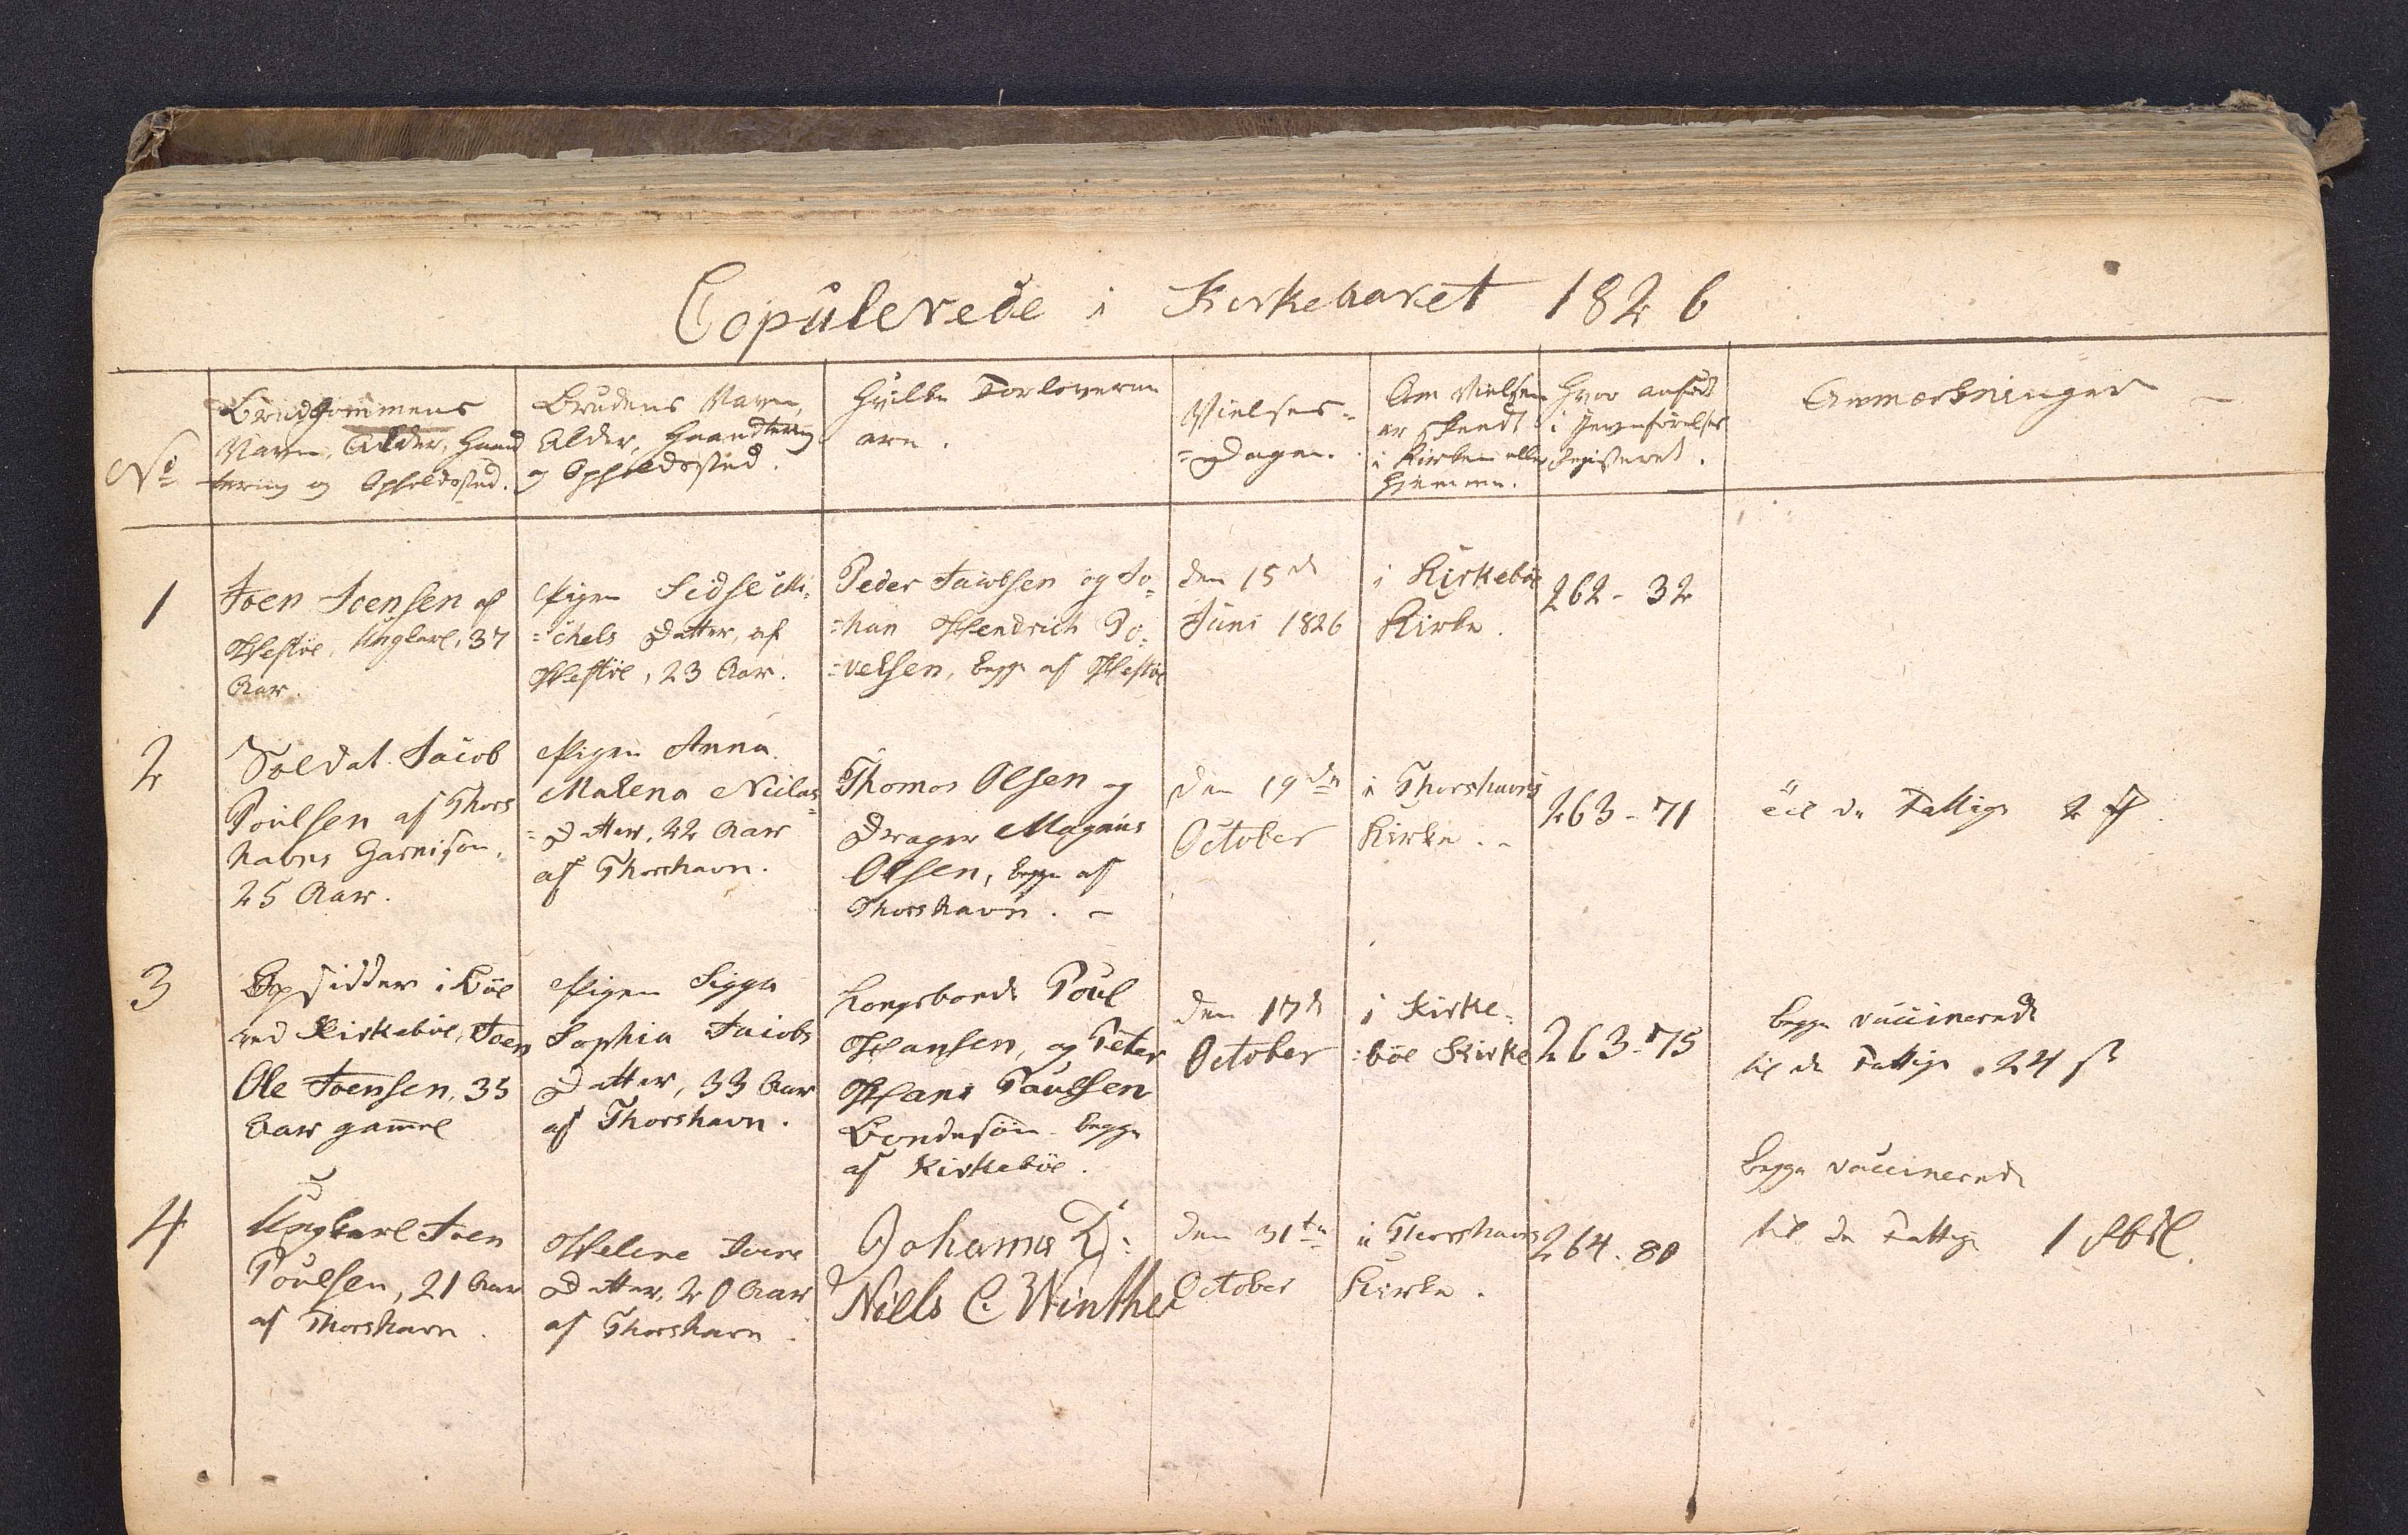 Copulerede i Kirkeaaret 1826
No
Brudgommens
Navn, Alder, Haand
tering og Opholdssted.
Brudens Navn,
Alder, Haandtering
og Opholdssted.
Hvilke Forloverne
ere.
Vielses=
=Dagen.
Om Vielsen
er skeedt
i Kirken eller
Hjemme.
Hvor anført
i Jevnførelses
Registeret.
Anmærkninger
1
Joen Joensen af
Hestøe, Ungkarl, 37
Aar.
Pigen Sidse Mi=
=chels Datter, af
Hestöe, 23 Aar.
Peder Jacobsen og Jo=
=han Hendrich Po=
=velsen, begge af Hestöe
den 15de
Juni 1826
i Kirkeböe
Kirke.
262 - 32
2
Soldat Jacob
Poulsen af Thors
havns Garnison,
25 Aar.
Pigen Anna
Malena Niclas=
=Datter, 22 Aar
af Thorshavn.
Thomas Olsen og
Drager Magnus
Olsen, begge af
Thorshavn. -
den 19de
October
i Thorshavns
Kirke. -
263 - 71
til de Fattige 2 ₰
3
Opsidder i Böe
ved Kirkeböe, Joen
Ole Joensen, 35
Aar gammel
Pigen Sigga
Sophia Jacobs
Datter, 33 Aar
af Thorshavn.
Kongsbonde Poul
Hansen, og Peter
Hans Poulsen
Bondesøn begge
af Kirkeböe.
den 17de
October
i Kirke=
=böe Kirke
263 - 75
begge vaccinerede
til de Fattige 24 ß
4
Ungkarl Joen
Poulsen, 21 Aar
af Thorshavn.
Helene Joens
Datter, 20 Aar
af Thorshavn.
Johannes D:
Niels C. Winther
den 31te
October
i Thorshavns
Kirke.
264. 80
begge vaccinerede
til de Fattige 1 Rbdl.